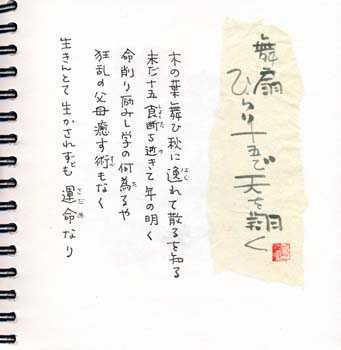 舞扇
ひらり十五で天を翔く
木の葉舞ひ秋に逸れて散るを知る
未だ十五食断ち逝きて年の明く
命削り励みし学の何為るや
狂乱の父母癒す術もなく
生きんとて生かされずとも運命なり